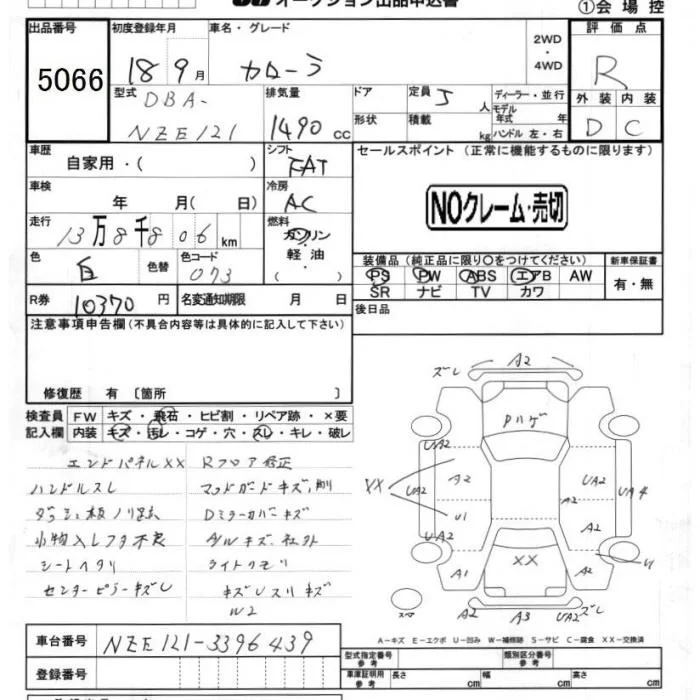 オークション出品申込書
①会場控
出品番号 初度登録年月 車名・グレード 評価点
5066 18 9月 カローラ 2WD・4WD R
型式 排気量 ドア 定員 5人 ディーラー・並行 外装 内装
DBA-
NZE121 1490 cc 形状 積載 kg モデル年式 年 ハンドル 左・右 D C
車歴 シフト セールスポイント (正常に機能するものに限ります)
自家用・( ) FAT
車検 冷房
年 月( 日) AC NOクレーム・売切
走行 燃料
13万8千806km ガソリン・軽油・( )
色 色替 色コード 装備品(純正品に限り○をつけてください) 新車保証書
白 073 PS PW ABS エアB AW 有・無
SR ナビ TV カワ
R券 10370円 名変通知期限 月 日 後日品
注意事項申告欄(不具合内容等は具体的に記入して下さい)
修復歴 有 〔箇所 〕
検査員 FW キズ・飛石・ヒビ割・リペア跡・×要
記入欄 内装 キズ・汚レ・コゲ・穴・スレ・キレ・破レ
エンドパネルXX Rフロア修正
ハンドルスレ マッドガードキズ、削
ダッシュ板ノリ跡 Dミラーカバーキズ
小物入レフタ不良 アルミキズ、社外
シートヘタリ ライトクモリ
センターピラーキズレ キズレスリキズ
W2
ズレ A2
Pハゲ
UA2 UA2
XX UA2 A2 UA2 UA4
U1 A2 A2
UA2 U
A1 XX A2
スペア A2 A3 UA2 ズレ
A-キズ E-エクボ U-凹み W-補修跡 S-サビ C-腐食 XX-交換済
車台番号 NZE121-3396439
型式指定番号 参考 類別区分番号 参考
登録番号 車庫証明用 参考 長さ cm 幅 cm 高さ cm